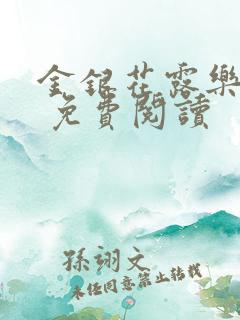 金銀花露樂
免費閱讀
孫翊文
未經同意禁止轉載